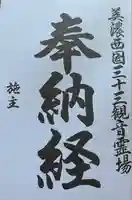 美濃西国三十三観音霊場
奉納経
施主